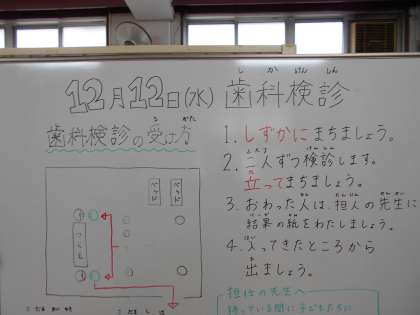 12月12日(水) 歯科検診
し か けん しん
歯科検診の受け方
う かた
1. しずかにまちましょう。
2. 二人ずつ検診します。
立ってまちましょう。
3. おわった人は、担任の先生に
結果の紙をわたしましょう。
4. 入ってきたところから
出ましょう。
ベッド
ベッド
つくえ
担任の先生へ
待っている間に子どもたちに